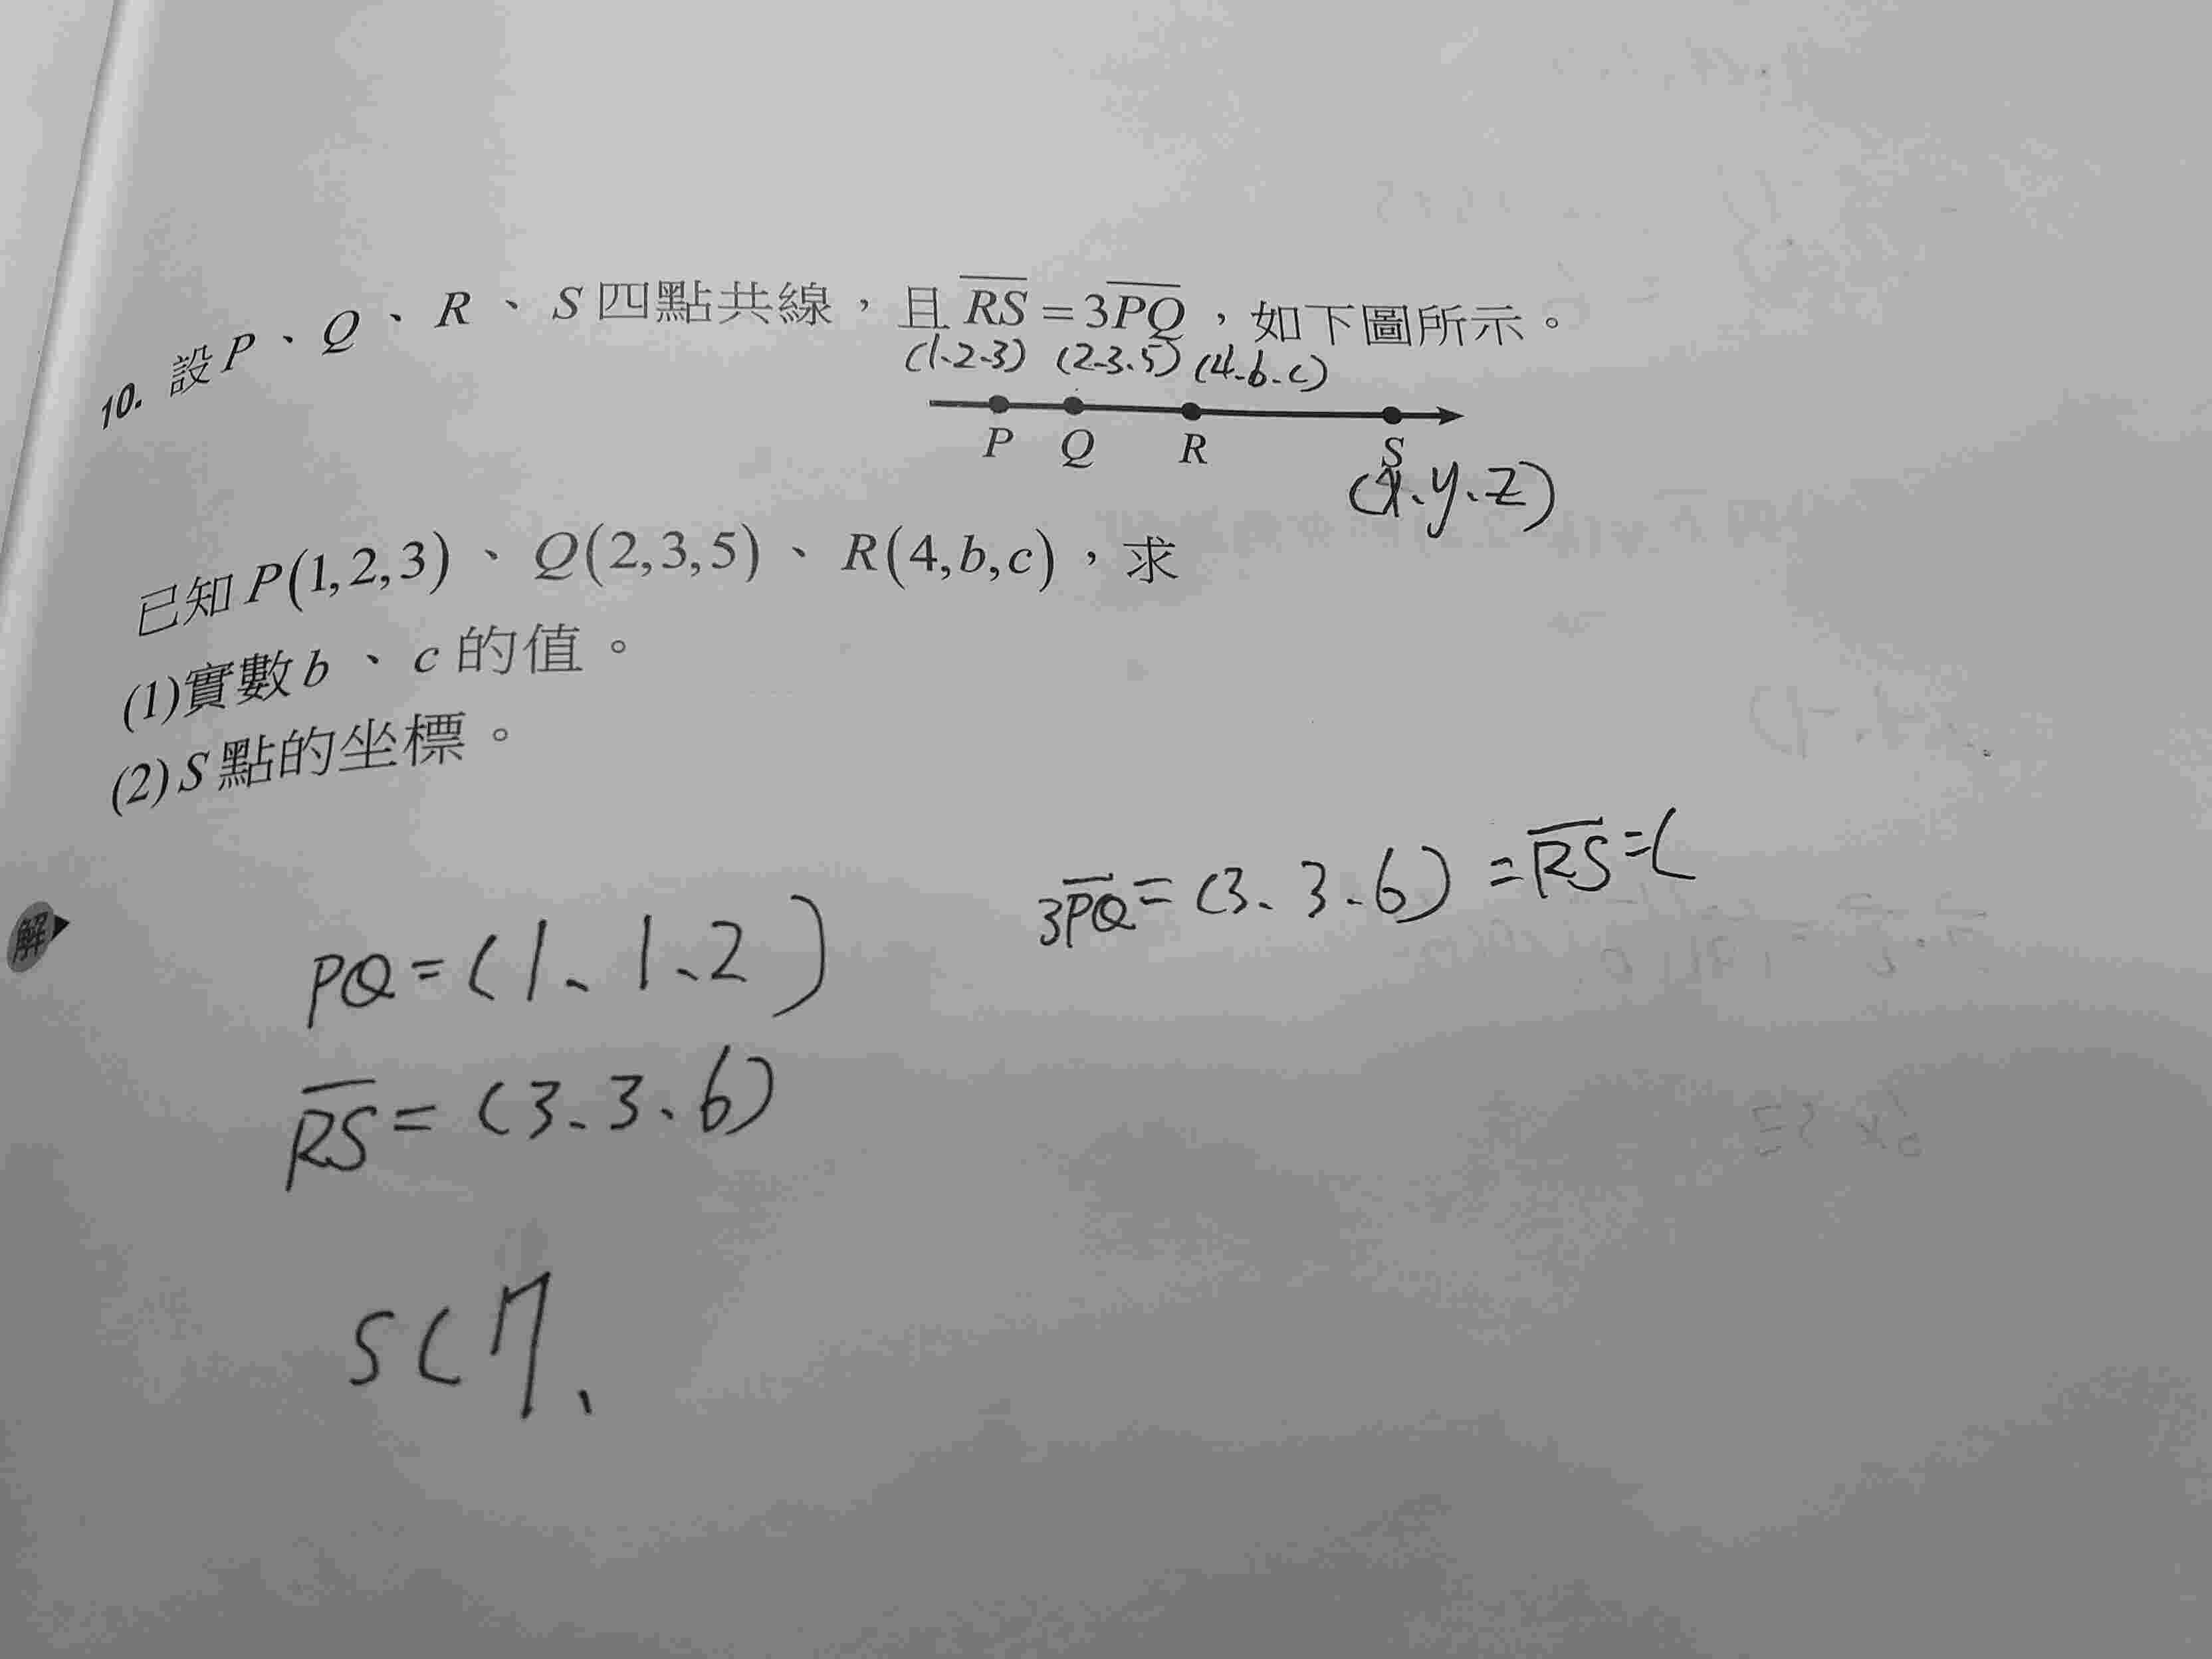 10. 設P、Q、R、S四點共線，且RS=3PQ，如下圖所示。
(1、2、3) (2、3、5) (4、b、c)
P Q R S
(x、y、z)
已知P(1,2,3)、Q(2,3,5)、R(4,b,c)，求
(1)實數b、c的值。
(2)S點的坐標。
3PQ=(3、3、6)=RS=(
解
PQ=(1、1、2)
RS=(3、3、6)
S(7、